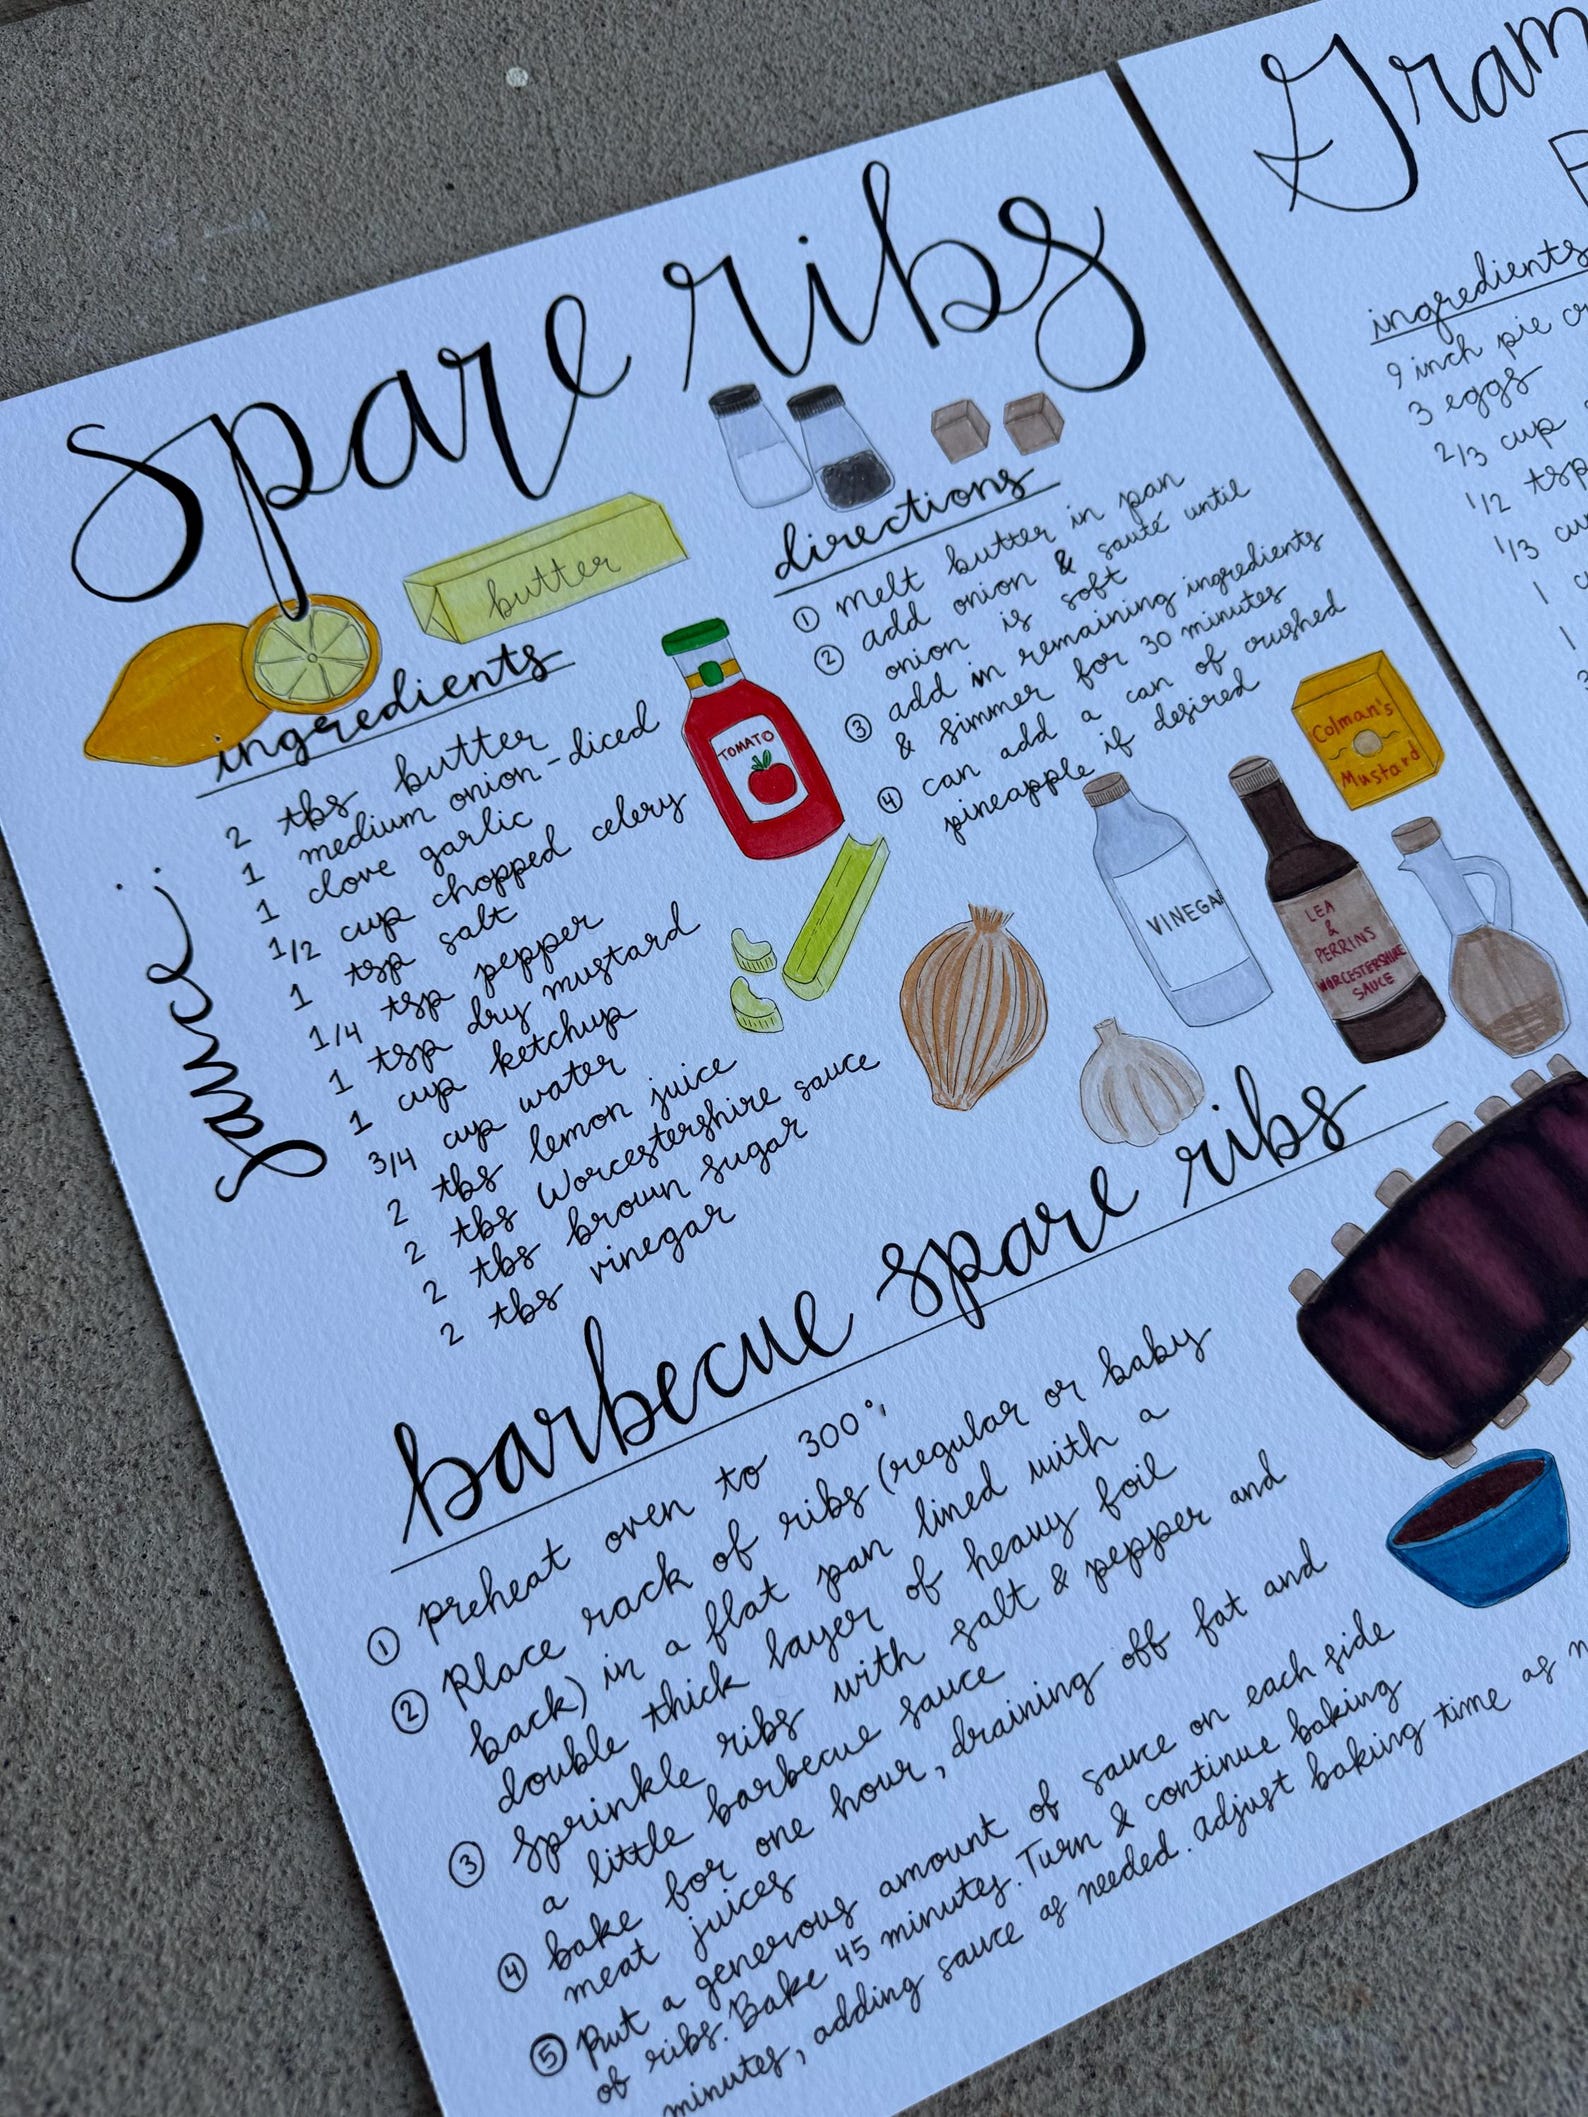 Spare ribs
butter
ingredients
Sauce:
2 tbs butter
1 medium onion-diced
1 clove garlic
1/2 cup chopped celery
1 tsp salt
1/4 tsp pepper
1 tsp dry mustard
1 cup ketchup
3/4 cup water
2 tbs lemon juice
2 tbs Worcestershire sauce
2 tbs brown sugar
2 tbs vinegar
TOMATO
directions
① melt butter in pan
② add onion & sauté until
onion is soft
③ add in remaining ingredients
& simmer for 30 minutes
④ can add a can of crushed
pineapple if desired
Colman's
Mustard
VINEGAR
LEA
&
PERRINS
WORCESTERSHIRE
SAUCE
barbecue spare ribs
① preheat oven to 300°
② Place rack of ribs (regular or baby
back) in a flat pan lined with a
double thick layer of heavy foil
③ Sprinkle ribs with salt & pepper and
a little barbecue sauce
④ bake for one hour, draining off fat and
meat juices
⑤ Put a generous amount of sauce on each side
of ribs. Bake 45 minutes. Turn & continue baking
minutes, adding sauce as needed. Adjust baking time as
Gram
ingredients
9 inch pie
3 eggs
2/3 cup
1/2 tsp
1/3
1
1